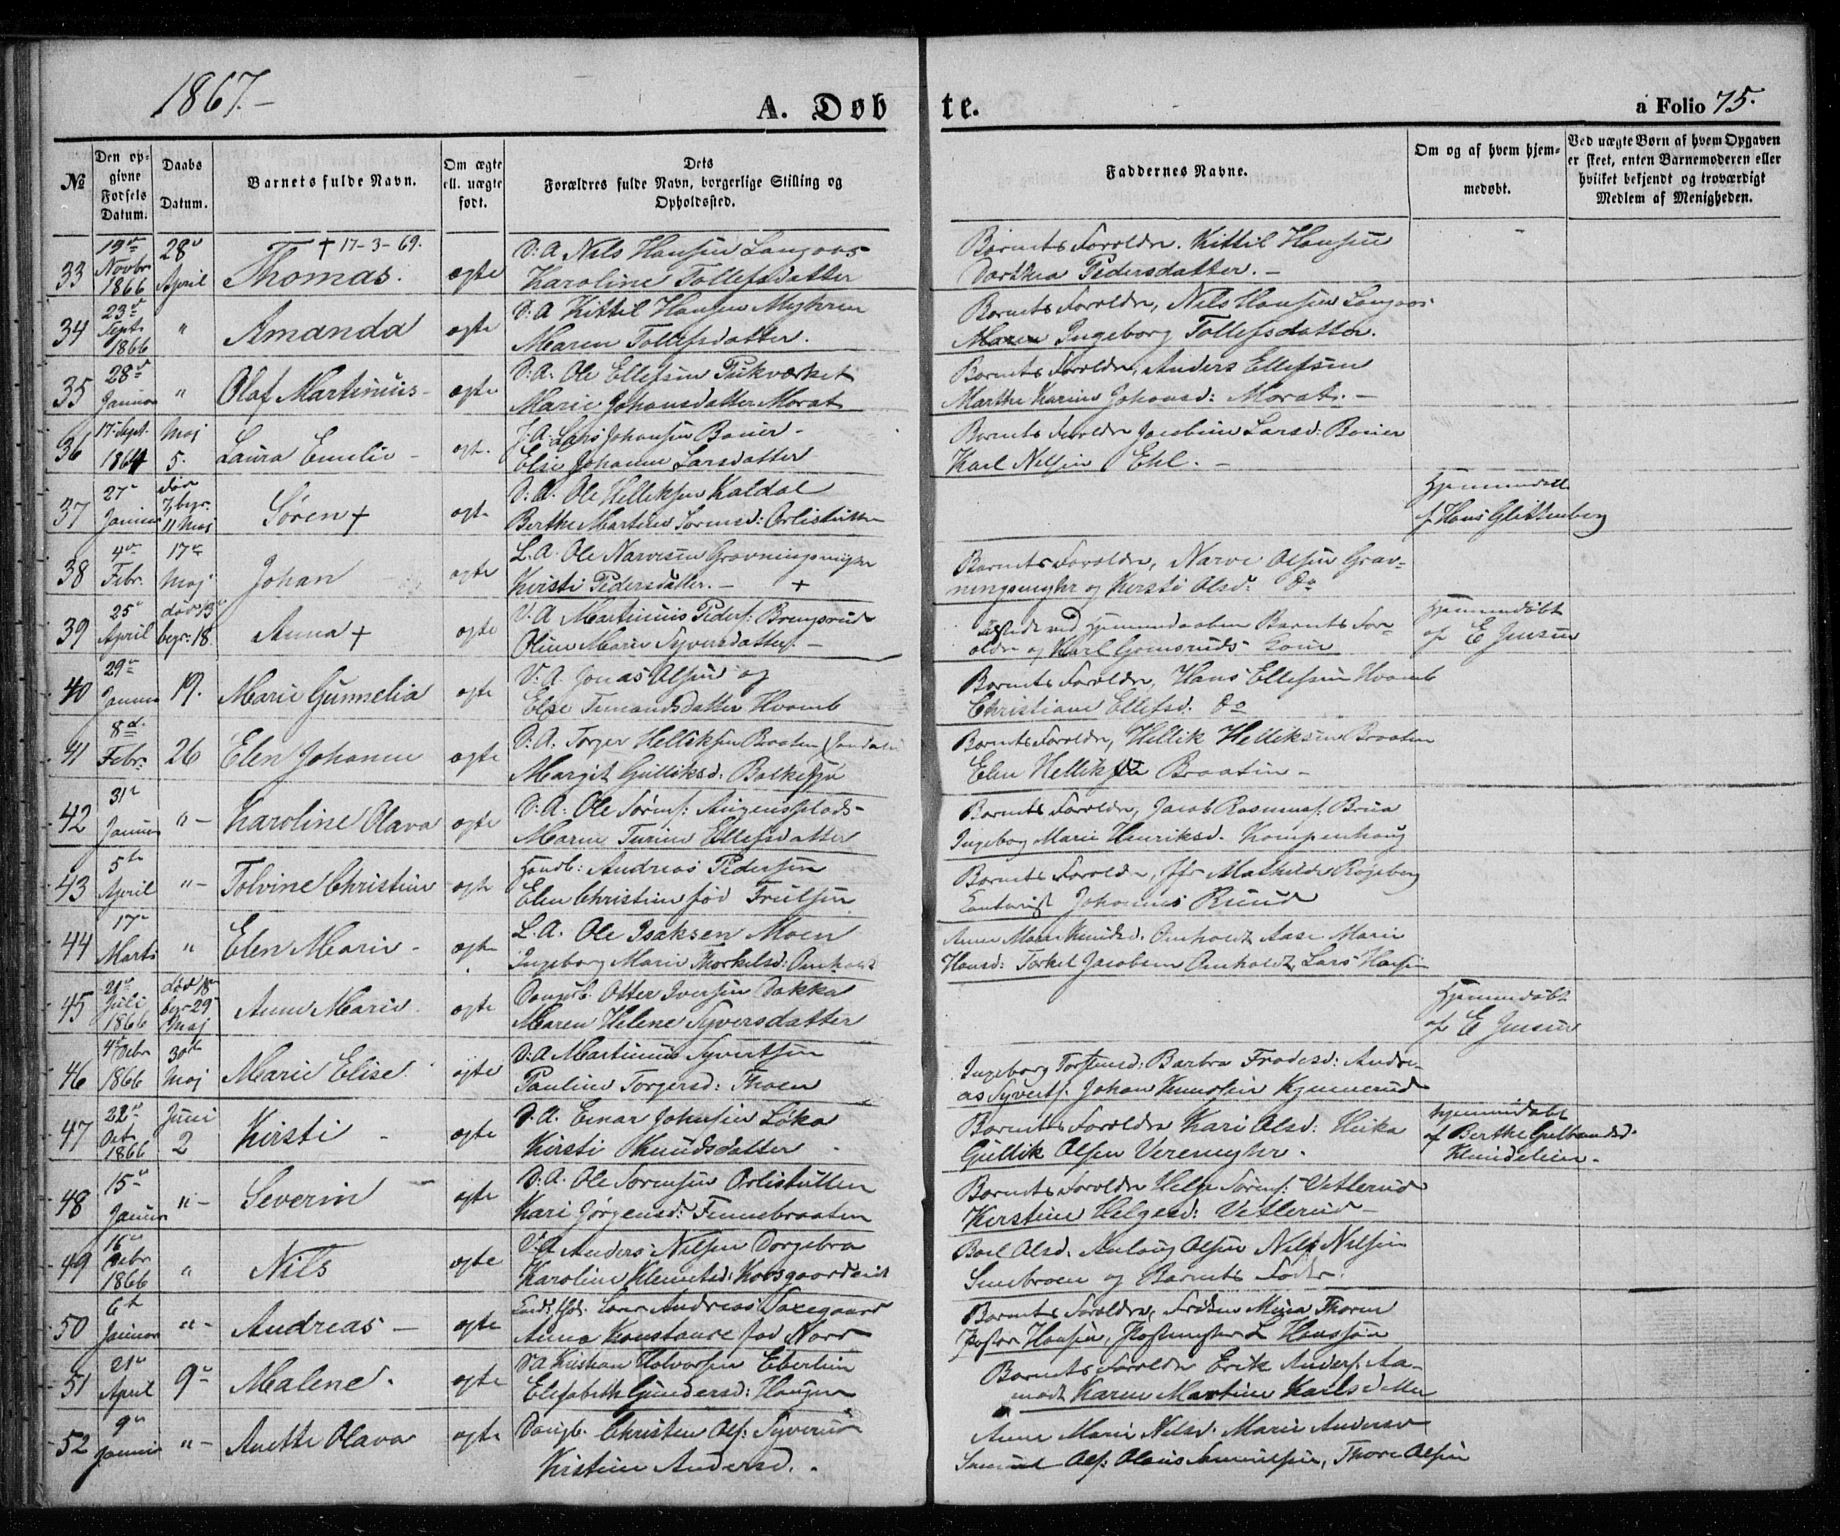 1867.-
A. Døbte.
a Folio 75.
№
Den opgivne Fødsels Datum.
Daabs Datum.
Barnets fulde Navn.
Om ægte ell. uægte født.
Dets Forældres fulde Navn, borgerlige Stilling og Opholdssted.
Faddernes Navne.
Om og af hvem hjemmedøbt.
Ved uægte Børn af hvem Opgaven er skeet, enten Barnemoderen eller hvilket bekjendt og troværdigt Medlem af Menigheden.
33 19de Novbr 1866 28de April Thomas. † 17-3-69. ægte D. A. Nils Hansen Langaas
Karoline Tollefsdatter
Barnets Foreldre. Kittil Hansen
Dorthea Pedersdatter. -
34 23de Sept. 1866 " Amanda ægte D. A. Kittil Hansen Myhren
Maren Tollefsdatter.
Barnets Foreldre, Nils Hansen Langaas
Maren Ingeborg Tollefsdatter.
35 28de Januar " Olaf Martinius - ægte D. A. Ole Ellefsen Pukværket
Marie Johansdatter Morat
Barnets Foreldre, Anders Ellefsen
Marthe Karine Johansd: Morat. -
36 17 Sept. 1864 Maj 5. Laura Emilie - ægt. J. A. Lars Johansen Bauer -
Else Johanne Larsdatter
Barnets Foreldre Jacobine Larsd: Bauer
Karl Nilsen Ekl. -
37 27de Januar død 7, begr. 11 Maj Søren + ægte D. A. Ole Helliksen Kaldal
Berthe Martine Sørensd: Orlistutten
Hjemmedøbt
af Hans Glittenberg
38 4de Febr. 17de Maj Johan - ægte L. A. Ole Narvesen Gravningsmyhr
Kirsti Pedersdatter. - +
Barnets Foreldre, Narve Olsen Grav-
ningsmyhr og Kirsti Olsd. Do
39 25de April død 13de begr. 18. Anna + ægte D. A. Martinius Peders: Brengsrud
Oline Marie Syversdatter. -
tilstede ved Hjemmedaaben Barnets For-
eldre og Karl Gomsruds Kone
Hjemmedøbt
af E Jensen
40 29de Januar 19. Marie Gunnelia ægte D. A. Jonas Olsen og
Else Tumandsdatter Hvamb
Barnets Foreldre, Hans Ellefsen Hvamb
Christiane Ellefsd. Do
41 8de Febr. 26 Elen Johanne ægte D. A. Torger Helliksen Braaten Jondalen
Margit Gulliksd: Bolkesjø
Barnets Foreldre, Hellik Helliksen Braaten
Elen Helliksd Braaten -
42 31te Januar " - Karoline Olava ægte D. A. Ole Sørens: Augensplads -
Maren Turine Ellefsdatter
Barnets Foreldre, Jacob Rasmus: Brua
Ingeborg Marie Henriksd. Kampenhaug
43 5te April " - Tolvine Christine ægte Handl: Andreas Pedersen
Elen Christine fød Frulsen
Barnets Foreldre, Jfr Mathilde Rogeberg
Contorist Johannes Ruud
44 17de Marts " Elen Marie - ægte L. A. Ole Isaksen Moen
Ingeborg Marie Thorkelsd: Omholt
Anne Marie Knudsd. Omholdt Aase Marie
Hansd: Torkel Jacobsen Omholdt, Lars Hansen
45 21de Juli 1866 død 18de begr 29de Maj Anne Marie - ægte Dagsb. Otter Iversen Dokka
Maren Helene Syversdatter
Hjemmedøbt
af E Jensen
46 4de Debr 1866 30te Maj Marie Elise ægte D. A. Martinius Syvertsen
Pauline Torgersd: Thoen
Ingeborg Torstensd: Barbra Frodesd: Andre-
as Syverts. Johan Knudsen Kjennerud
47 22de Oct. 1866 Juni 2 Kirsti - ægte D. A. Einar Johnsen Løka
Kirsti Knudsdatter
Barnets Foreldre Kari Olsd: Heika
Gullik Olsen Veremyhr.
hjemmedøbt
af Berthe Gulbrandsd.
48 15de Januar " - Severin - ægte D. A. Ole Sørensen Orlistutten
Kari Jørgensd: Finnebraaten
Barnets Foreldre Helge Sørens: Vetlerud
Kirstine Helgesd: Vetlerud -
49 16de Debr 1866 " Nils ægte D. A. Anders Nilsen Dorgebra
Karoline Klemetsd: Korsgaardeiet
Boel Olsd. Aslaug Olsen Nils Nilsen
og Barnets Fader.
50 6te Januar " - Andreas - ægte Andreas Saxegaard
Anna Konstance fød Norr
Barnets Foreldre, Frøken Mina Thorm
Pastor Hansen, Postmester L Hanssen
51 21de April 9de Malene - ægte D. A. Kristian Halvorsen Eberlein
Elisabeth Gundersd: Haugen
Barnets Foreldre Erik Anders. Aa-
modt Karen Martine Karlsdatter
52 9de Januar " - Anette Olava ægte Daugb. Christen Ols: Syverud
Kirstine Andersd.
Anne Marie Nilsd. Marie Andersd
Samuel Ols: Olaus Samuelsen, Thore Olsen